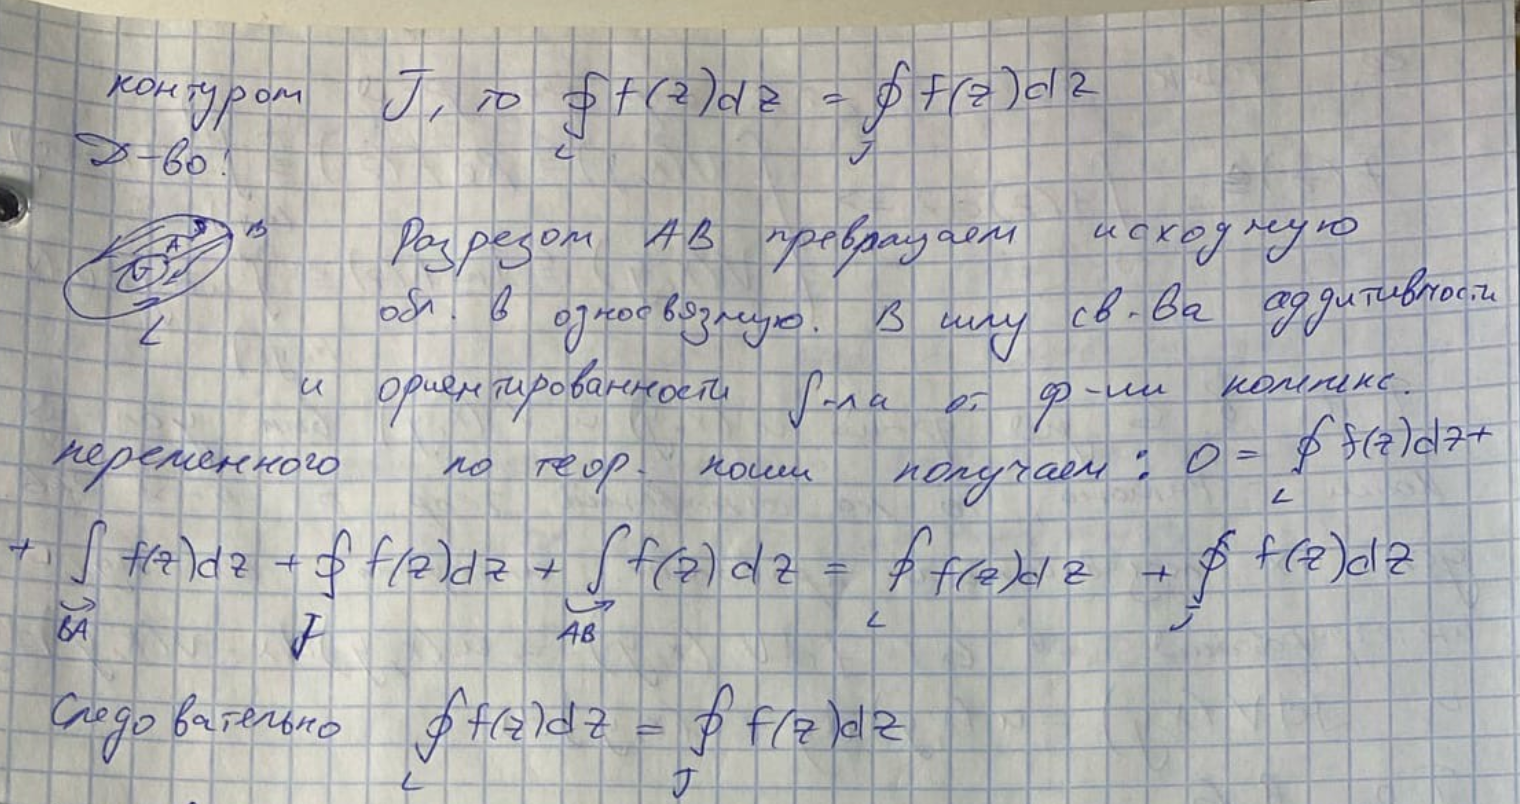 контуром J, то ∮ f(z)dz = ∮ f(z)dz
L J
Д-во:
A B
L
Разрезом AB превращаем исходную
обл. в односвязную. В силу св-ва аддитивности
и ориентированности ∫-ла от ф-ии комплекс.
переменного по теор. коши получаем: 0 = ∮ f(z)dz+
L
+ ∫ f(z)dz + ∮ f(z)dz + ∫ f(z)dz = ∮ f(z)dz + ∮ f(z)dz
BA J AB L J
Следовательно ∮ f(z)dz = ∮ f(z)dz
L J